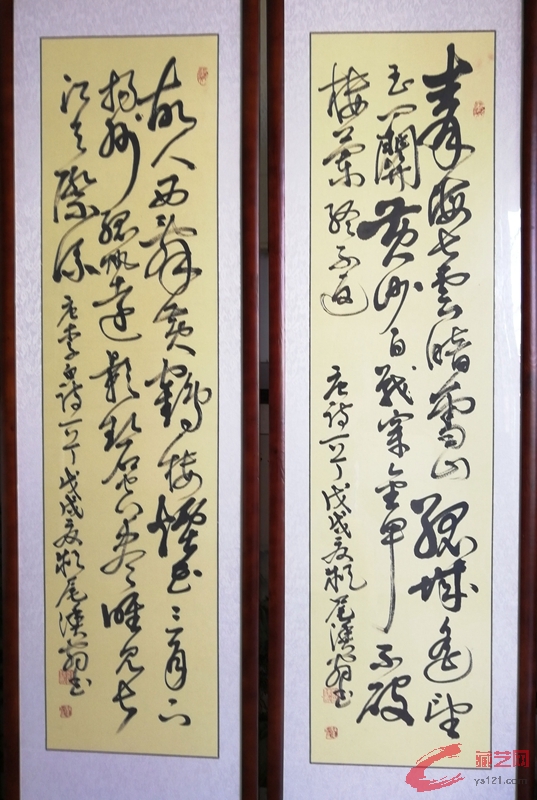 青海长雲暗雪山孤城遥望
玉门關黄沙百戰穿金甲不破
楼蘭终不還
唐诗 戊戌夏 尾溪翁书
故人西辞黄鹤楼烟花三月下
扬州孤帆远影碧空尽唯见长
江天际流
唐李白诗 戊戌夏 尾溪翁书
藏艺网
ys121.com